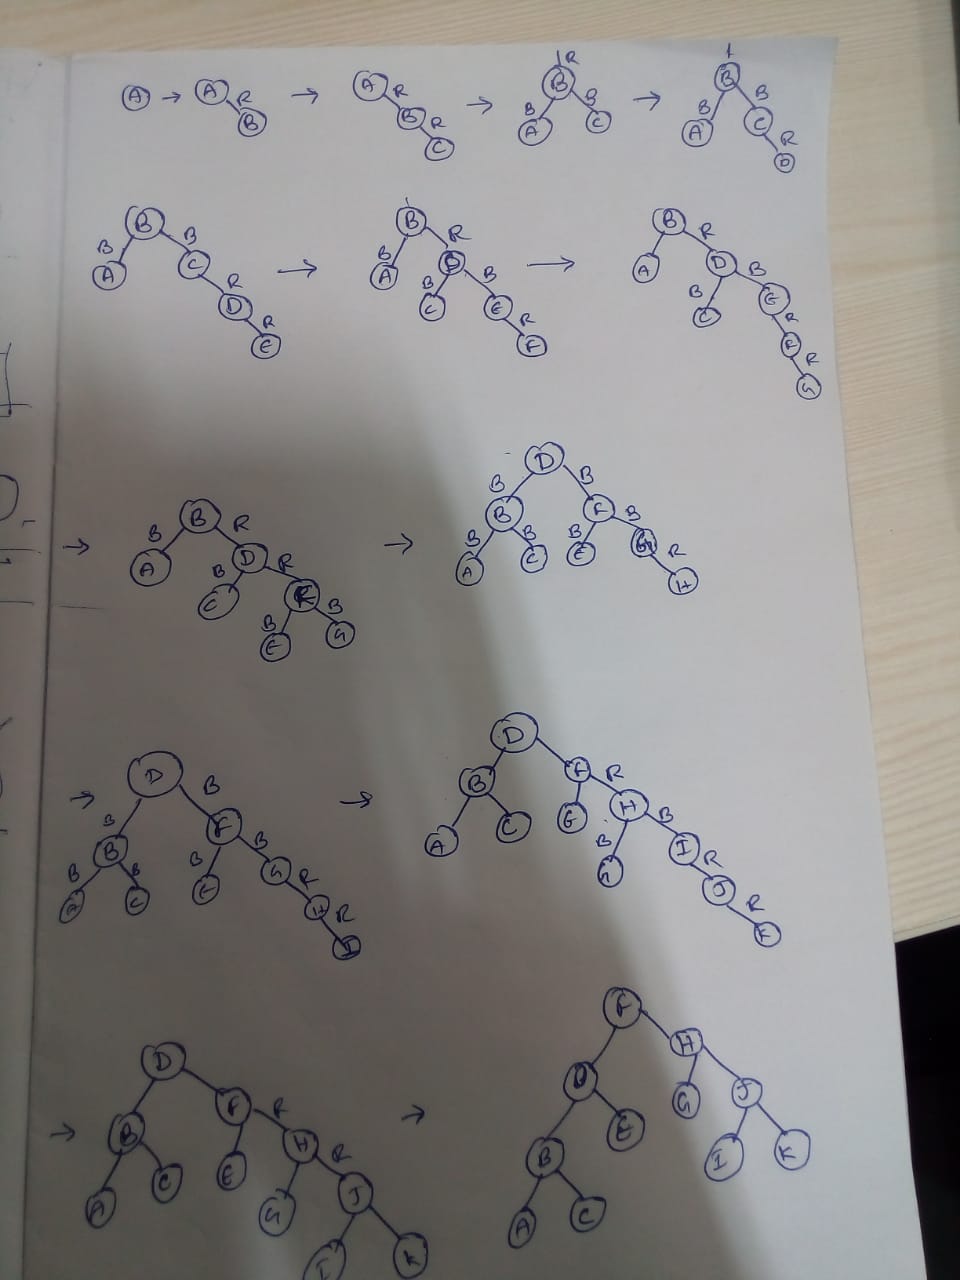 A → A R B → A R B R C → R B B A B C → 1 B B A B C R D
B B A B C R D R E → B B A R D B C B E R F → B A R D B C B E R F R G
→ B B A R D B C R F B E B G → D B B B A B C B F B E B G R H
→ D B B B A B C B F B E B G R H R I → D B A C F E R H B G B I R J R K
→ D B A C F E R H G R J I K → F D B A C E H G J I K